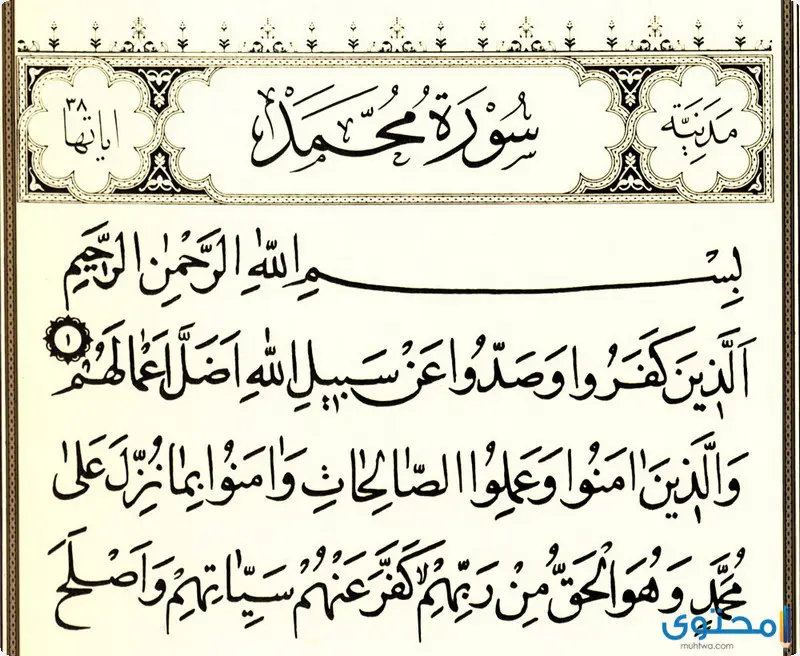 مَدَنِيَّة
سُورَةُ مُحَمَّدٍ
اياتها ٣٨
بِسْمِ اللهِ الرَّحْمٰنِ الرَّحِيمِ
اَلَّذِينَ كَفَرُوا وَصَدُّوا عَنْ سَبِيلِ اللهِ اَضَلَّ اَعْمَالَهُمْ ١
وَالَّذِينَ اٰمَنُوا وَعَمِلُوا الصَّالِحَاتِ وَاٰمَنُوا بِمَا نُزِّلَ عَلٰى
مُحَمَّدٍ وَهُوَ الْحَقُّ مِنْ رَبِّهِمْ لا كَفَّرَ عَنْهُمْ سَيِّاٰتِهِمْ وَاَصْلَحَ
محتوى
muhtwa.com